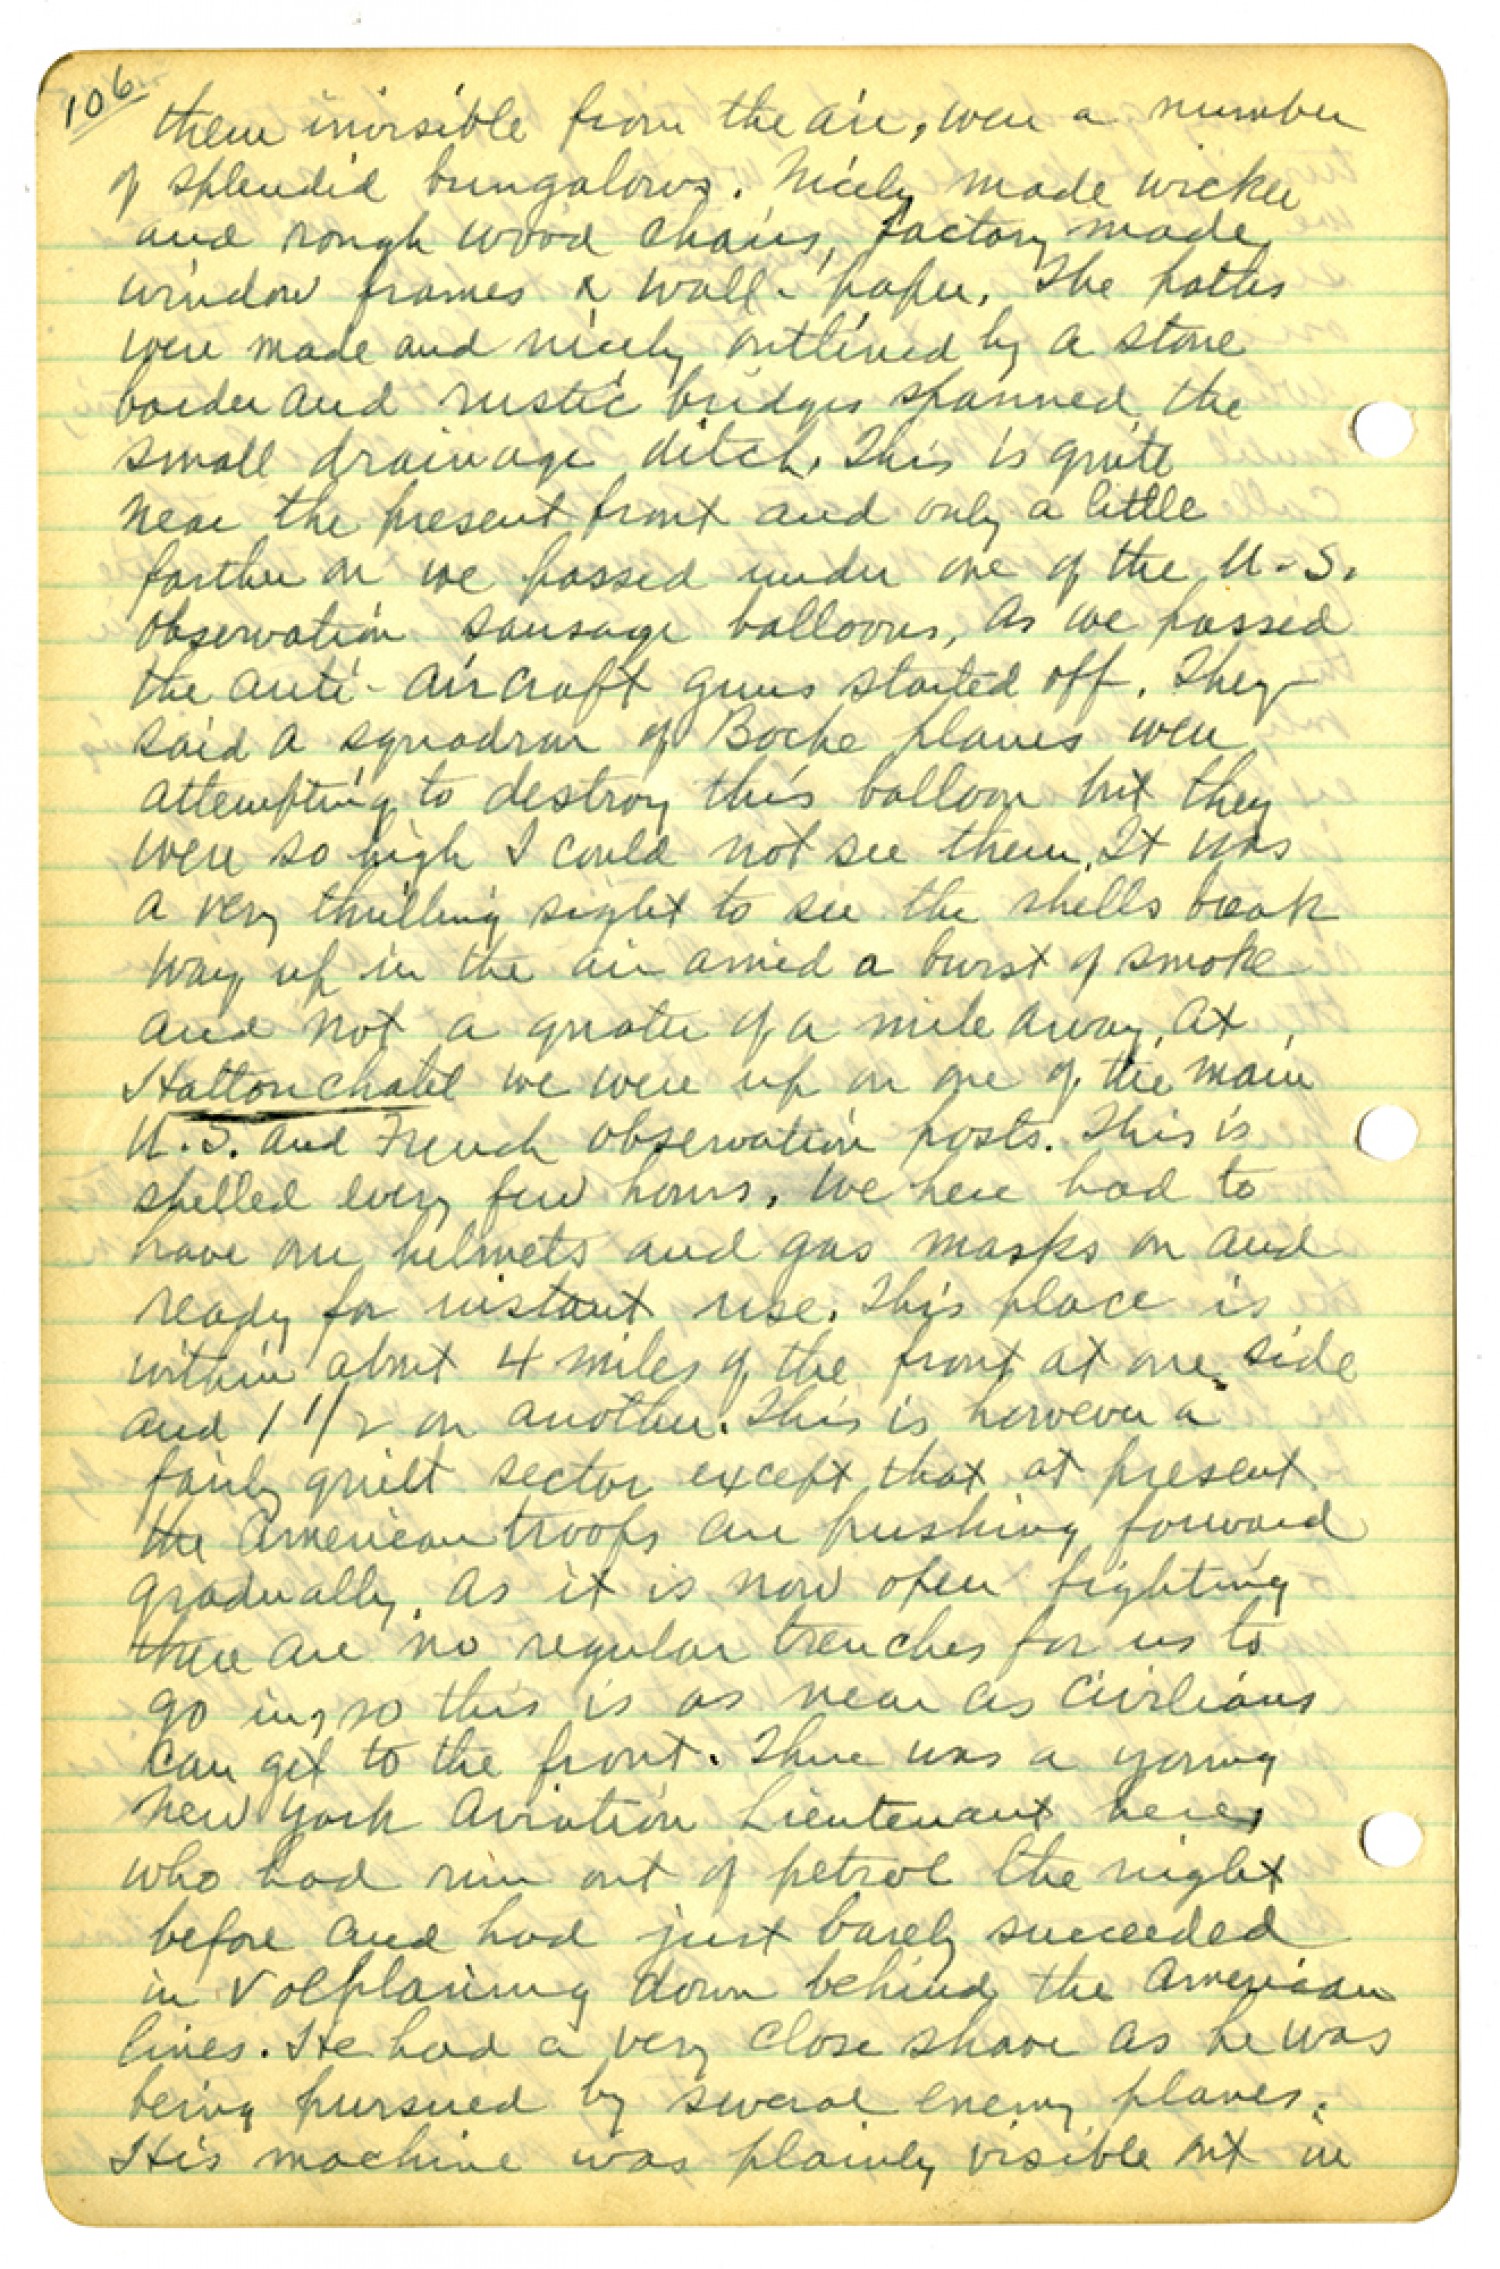 106
them invisible from the air, were a number
of splendid bungalows. Nicely made wicker
and rough wood chairs, factory made
window frames & wall-paper. The paths
were made and nicely outlined by a stone
border and rustic bridges spanned the
small drainage ditch. This is quite
near the present front and only a little
farther on we passed under one of the U.S.
observation sausage balloons, as we passed
the anti-aircraft guns started off. They
said a squadron of Boche planes were
attempting to destroy this balloon but they
were so high I could not see them. It was
a very thrilling sight to see the shells break
way up in the air amid a burst of smoke
and not a quater of a mile away. At
Hattonchatel we were up on one of the main
U.S. and French observation posts. This is
shelled every few hours. We here had to
have our helmets and gas masks on and
ready for instant use. This place is
within about 4 miles of the front at one side
and 1 1/2 on another. This is however a
fairly quiet sector except that at present
the American troops are pushing forward
gradually. As it is now open fighting
there are no regular trenches for us to
go in, so this is as near as civilians
can get to the front. There was a young
New York Aviation Lieutenant here,
who had run out of petrol the night
before and had just barely succeeded
in volplaning down behind the American
lines. He had a very close shave as he was
being pursued by several enemy planes.
His machine was plainly visible out in